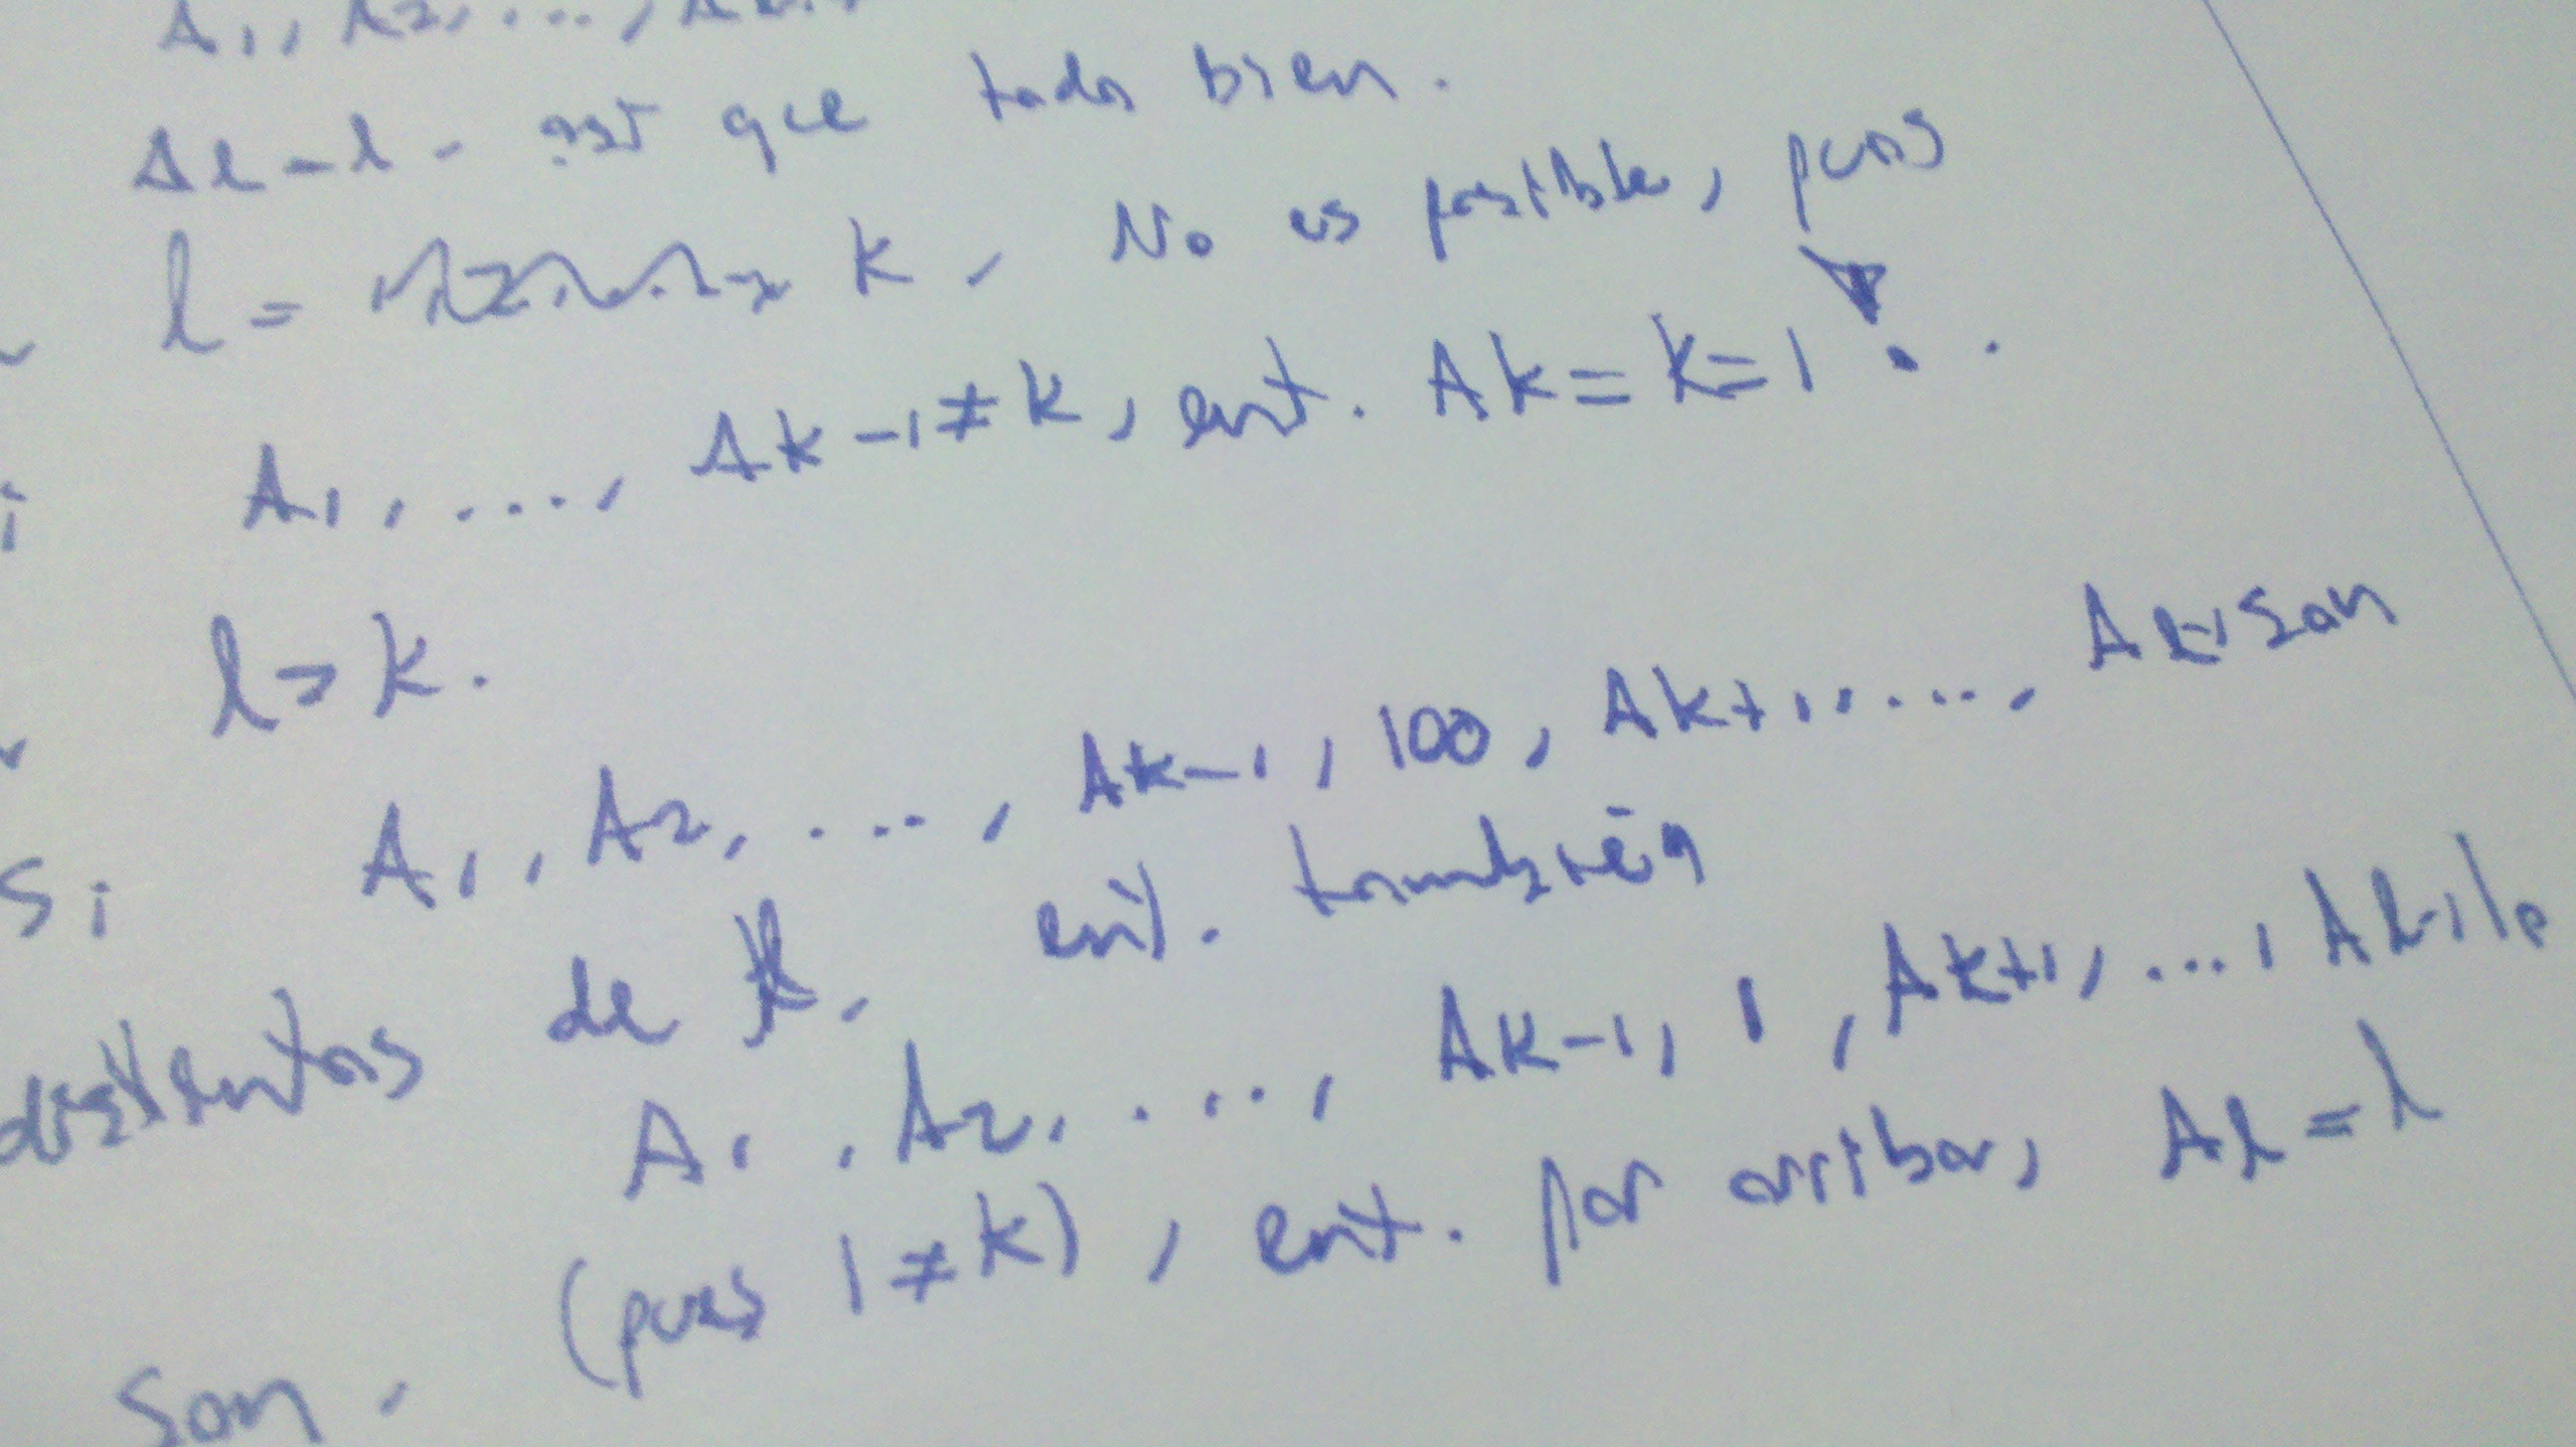 A1, A2, ...,
Al=l. así que todo bien.
l = k. No es posible, pues
A1, ..., Ak-1≠k, ent. Ak=k=1
l>k.
Si A1, A2, ..., Ak-1, 100, Ak+1, ..., Al-1 son
distintos de l. ent. también
A1, A2, ..., Ak-1, 1, Ak+1, ..., Al-1 lo
son. (pues 1≠k), ent. por arriba, Al=l